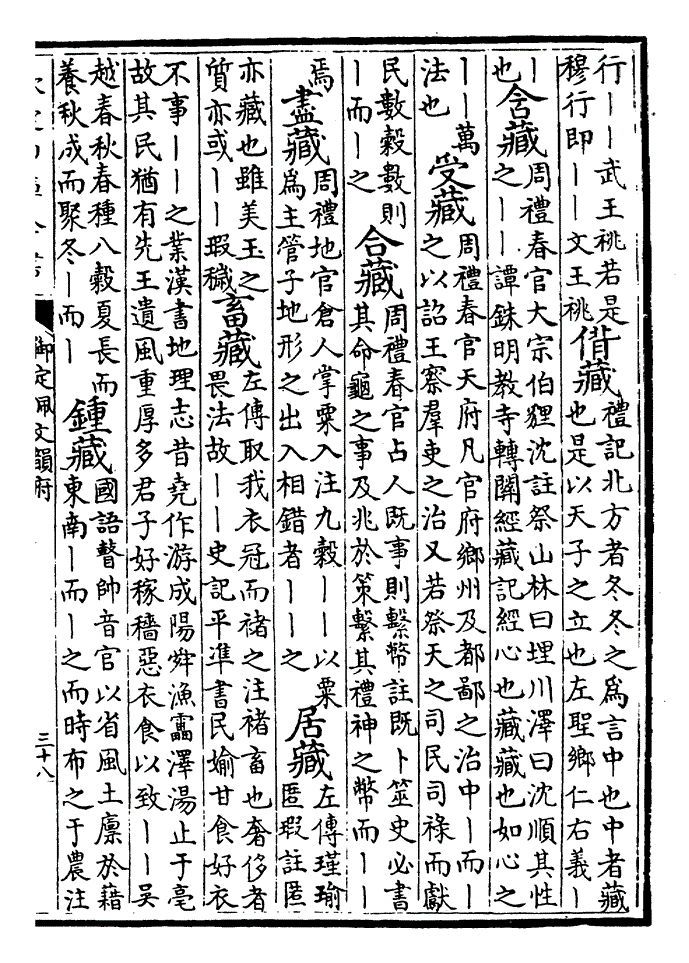 行丨丨武王祧若是
穆行即丨丨文王祧
偝藏
禮記北方者冬冬之為言中也中者藏
也是以天子之立也左聖鄉仁右義丨
丨
也
含藏
周禮春官大宗伯貍沈註祭山林曰埋川澤曰沈順其性
之丨丨譚銖明教寺轉關經藏記經心也藏藏也如心之
丨丨萬
法也
受藏
周禮春官天府凡官府鄉州及都鄙之治中丨而丨
之以詔王察羣吏之治又若祭天之司民司祿而獻
民數穀數則
丨而丨之
合藏
周禮春官占人既事則繫幣註既卜筮史必書
其命龜之事及兆於策繫其禮神之幣而丨丨
焉
盡藏
周禮地官倉人掌粟入注九穀丨丨以粟
為主管子地形之出入相錯者丨丨之
居藏
左傳瑾瑜
匿瑕註匿
亦藏也雖美玉之
質亦或丨丨瑕穢
畜藏
左傳取我衣冠而褚之注褚畜也奢侈者
畏法故丨丨史記平準書民媮甘食好衣
不事丨丨之業漢書地理志昔堯作游成陽舜漁靁澤湯止于亳
故其民猶有先王遺風重厚多君子好稼穡惡衣食以致丨丨吳
越春秋春種八穀夏長而
養秋成而聚冬丨而丨
鍾藏
國語瞽帥音官以省風土廩於藉
東南丨而丨之而時布之于農注
御定佩文韻府
三十八